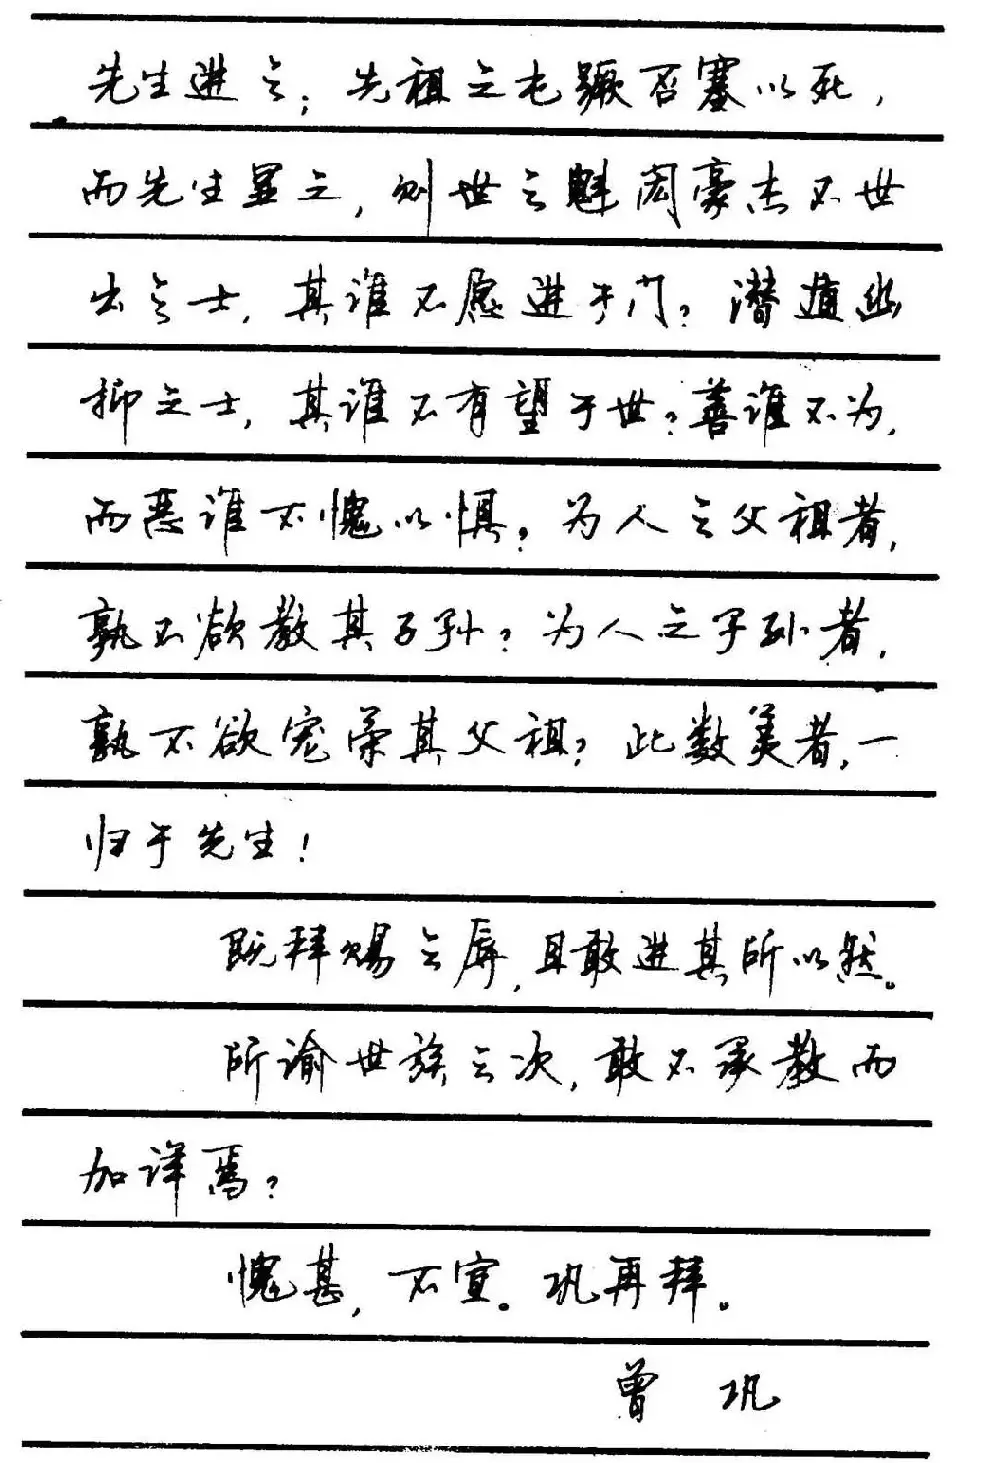 先生进之；先祖之屯蹶否塞以死，
而先生显之，则世之魁闳豪杰不世
出之士，其谁不愿进于门？潜遁幽
抑之士，其谁不有望于世？善谁不为，
而恶谁不愧以惧？为人之父祖者，
孰不欲教其子孙？为人之子孙者，
孰不欲宠荣其父祖？此数美者，一
归于先生！
既拜赐之辱，且敢进其所以然。
所谕世族之次，敢不承教而
加详焉？
愧甚，不宣。巩再拜。
曾 巩